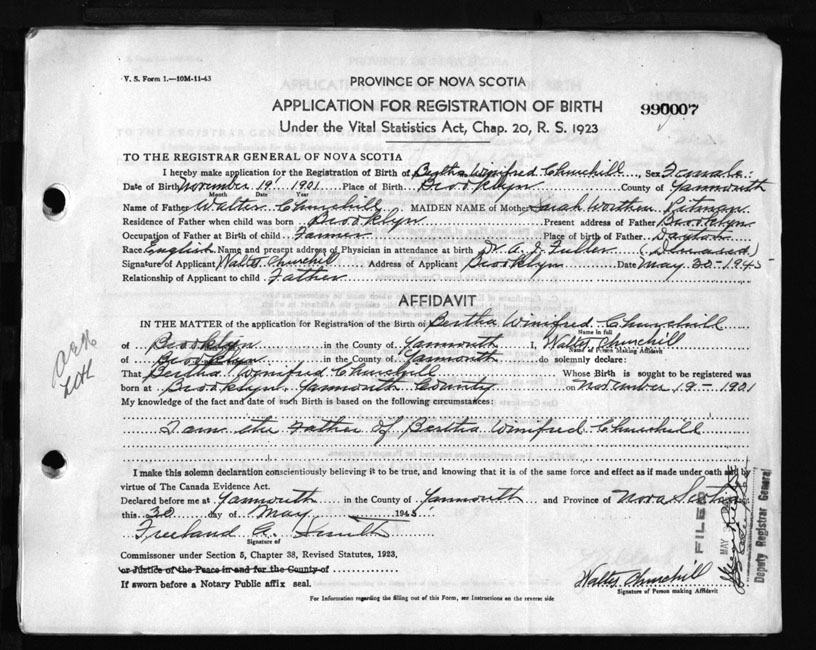 V. S. Form 1.—10M-11-43
PROVINCE OF NOVA SCOTIA
APPLICATION FOR REGISTRATION OF BIRTH
990007
Under the Vital Statistics Act, Chap. 20, R. S. 1923
TO THE REGISTRAR GENERAL OF NOVA SCOTIA
I hereby make application for the Registration of Birth of Bertha Winifred Churchill, Sex Female:
Date of Birth November 19 1901 Place of Birth Brooklyn County of Yarmouth
Month Date Year
Name of Father Walter Churchill MAIDEN NAME of Mother Sarah Worthen Pitman
Residence of Father when child was born Brooklyn Present address of Father Brooklyn
Occupation of Father at Birth of child Farmer Place of birth of Father Dayton
Race English Name and present address of Physician in attendance at birth Dr. A. J. Fuller (Deceased)
Signature of Applicant Walter Churchill Address of Applicant Brooklyn Date May 30-1945
Relationship of Applicant to child Father
AFFIDAVIT
IN THE MATTER of the application for Registration of the Birth of Bertha Winifred Churchill
Name in full
of Brooklyn in the County of Yarmouth I, Walter Churchill
Name of Person Making Affidavit
of Brooklyn in the County of Yarmouth do solemnly declare:
That Bertha Winifred Churchill Whose Birth is sought to be registered was
born at Brooklyn Yarmouth County on November 19-1901
My knowledge of the fact and date of such Birth is based on the following circumstances:
I am the Father of Bertha Winifred Churchill
I make this solemn declaration conscientiously believing it to be true, and knowing that it is of the same force and effect as if made under oath and by
virtue of The Canada Evidence Act.
Declared before me at Yarmouth in the County of Yarmouth and Province of Nova Scotia
this 30 day of May 1945
Freeland A. Smith
Signature of
Commissoner under Section 5, Chapter 38, Revised Statutes, 1923,
or Justice of the Peace in and for the County of
If sworn before a Notary Public affix seal.
Walter Churchill
Signature of Person making Affidavit
For Information regarding the filling out of this Form, see Instructions on the reverse side
FILED
MAY
Deputy Registrar General